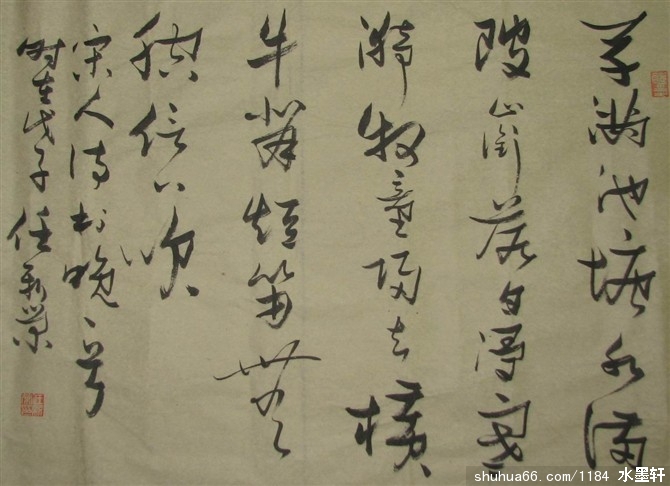 草满池塘水满
陂山衔落日浸寒
漪牧童归去横
牛背短笛無
腔信口吹
宋人诗村晚一首
时在戊子 任新荣
shuhua66.com/1184 水墨轩